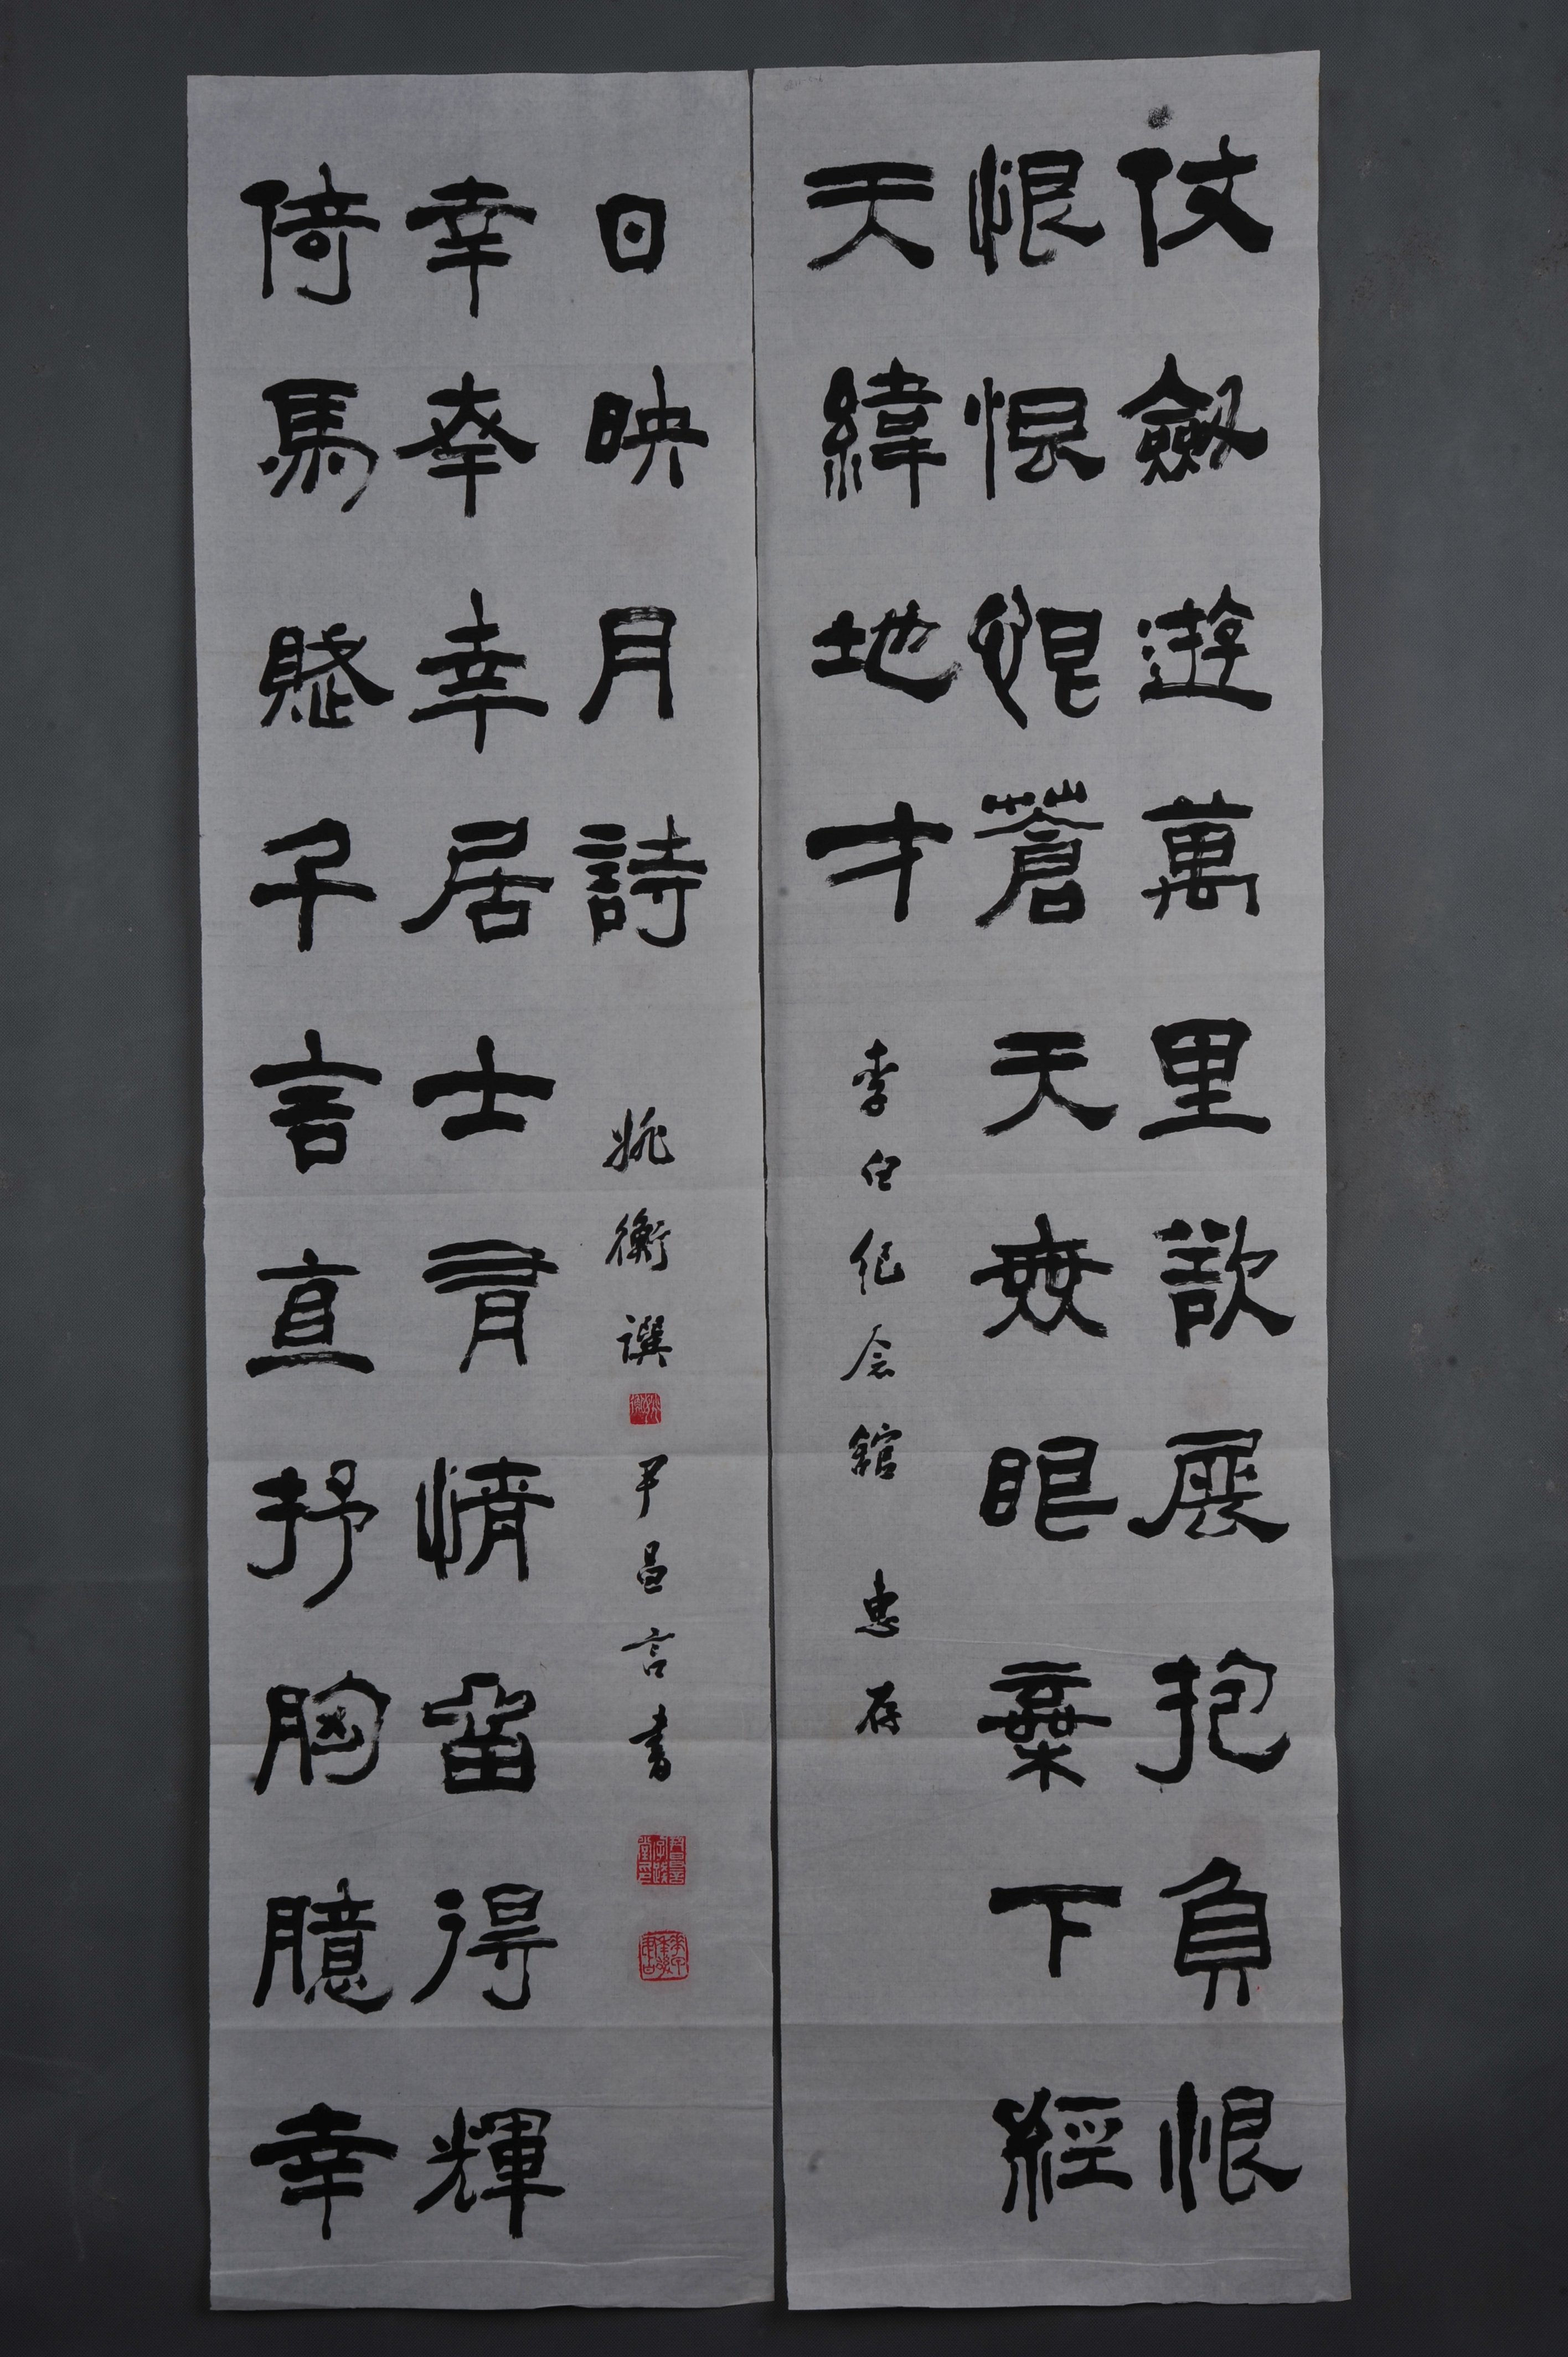 仗劍遊萬里欲展抱負恨
恨恨恨蒼天無眼棄下經
天緯地才
李白纪念館 惠存
倚馬賦千言直抒胸臆幸
幸幸幸居士有情留得輝
日映月詩
姚衡撰 尹昌言書